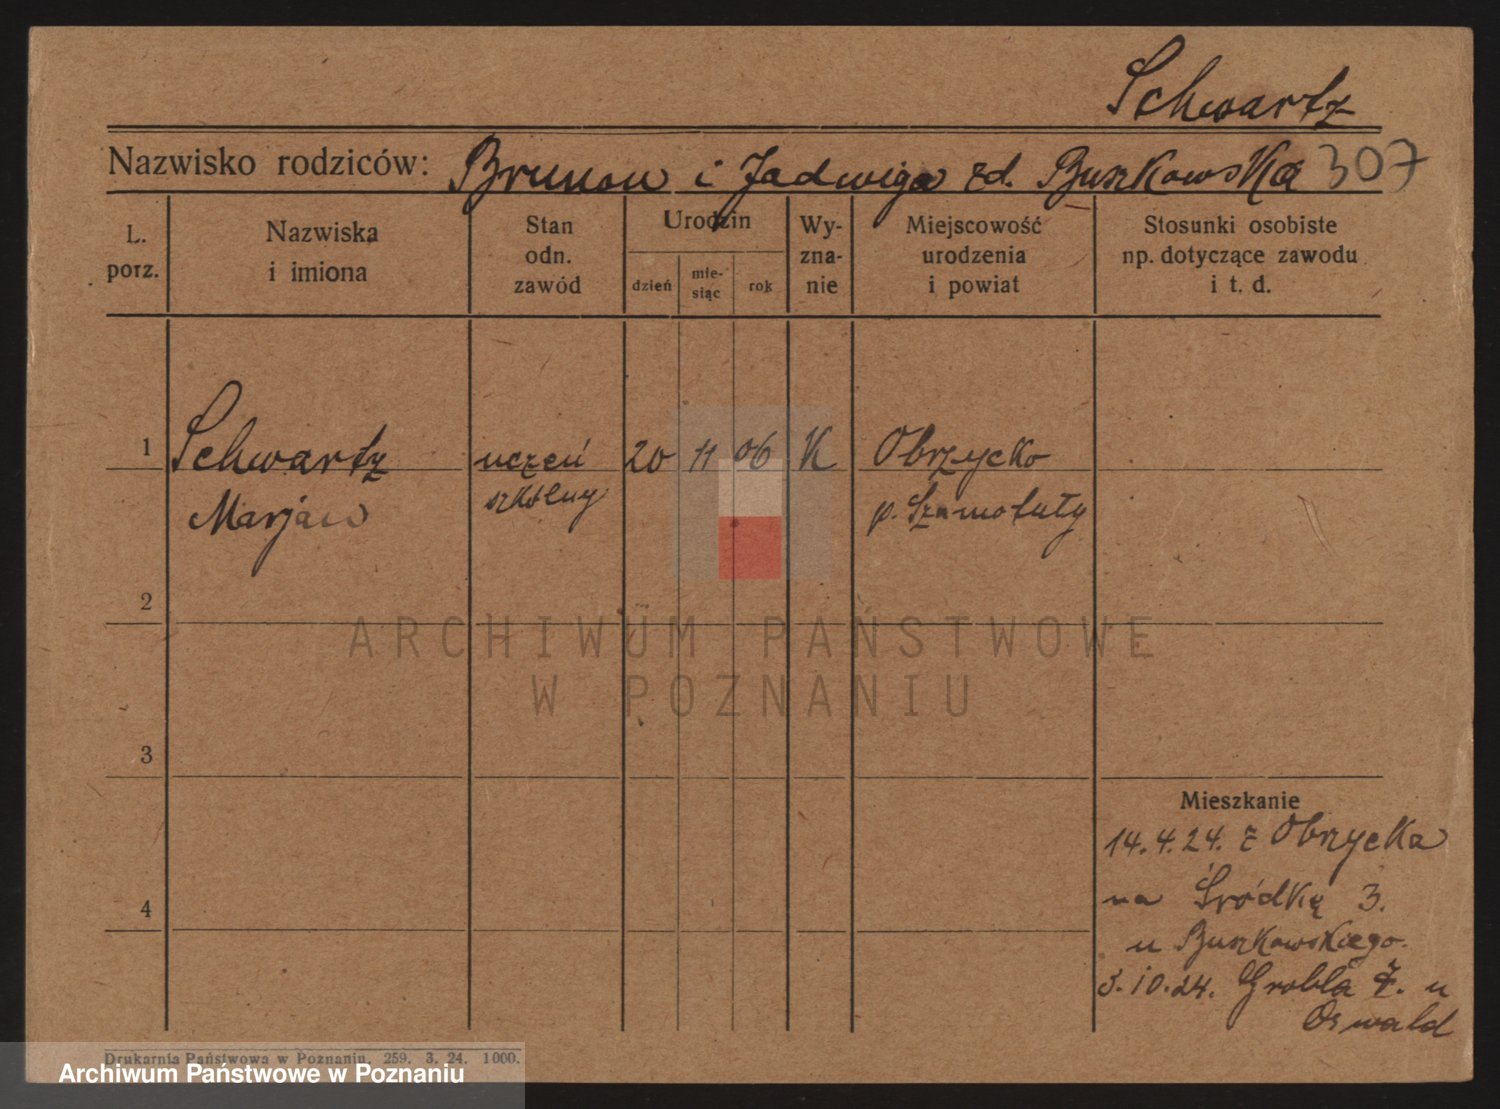 Schwartz
Nazwisko rodziców: Brunon i Jadwiga zd. Buszkowska 307
L. porz.
Nazwiska i imiona
Stan odn. zawód
Urodzin
dzień
mie-siąc
rok
Wy-zna-nie
Miejscowość urodzenia i powiat
Stosunki osobiste np. dotyczące zawodu i t. d.
1 Schwartz uczeń 20 11 06 K Obrzycko
Marjan szkólny p. Szamotuły
2
ARCHIWUM PAŃSTWOWE
W POZNANIU
3
Mieszkanie
14.4.24. z Obrzycka
4
na Śródkę 3.
u Buszkowskiego.
3.10.24. Grobla 7. u
Oswald
Drukarnia Państwowa w Poznaniu. 259. 3. 24. 1000.
Archiwum Państwowe w Poznaniu